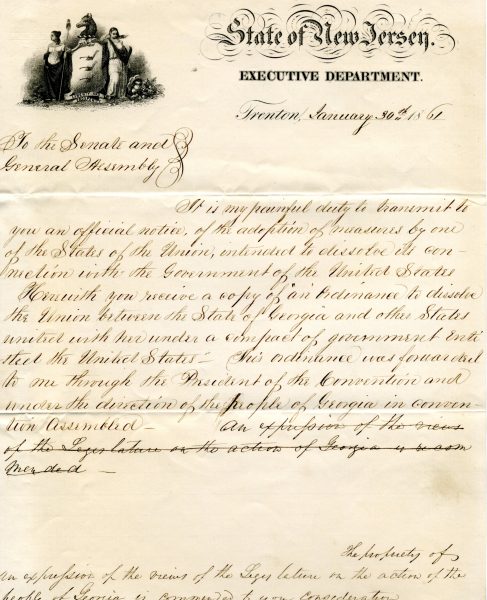 State of New Jersey.
EXECUTIVE DEPARTMENT.
Trenton, January 30th 1861
To the Senate and
General Assembly
It is my painful duty to transmit to
you an official notice, of the adoption of measures by one
of the States of the Union, intended to dissolve its con-
nection with the Government of the United States
Herewith you receive a copy of "an Ordinance to dissolve
the Union between the State of Georgia and other States
united with her under a compact of government Enti
tled the United States - This ordinance was forwarded
to me through the President of the Convention and
under the direction of the people of Georgia in conven
tion Assembled - An expression of the views
of the Legislature on the action of Georgia is recom
mended -
The propriety of
an expression of the views of the Legislature on the action of the
people of Georgia is commended to your consideration